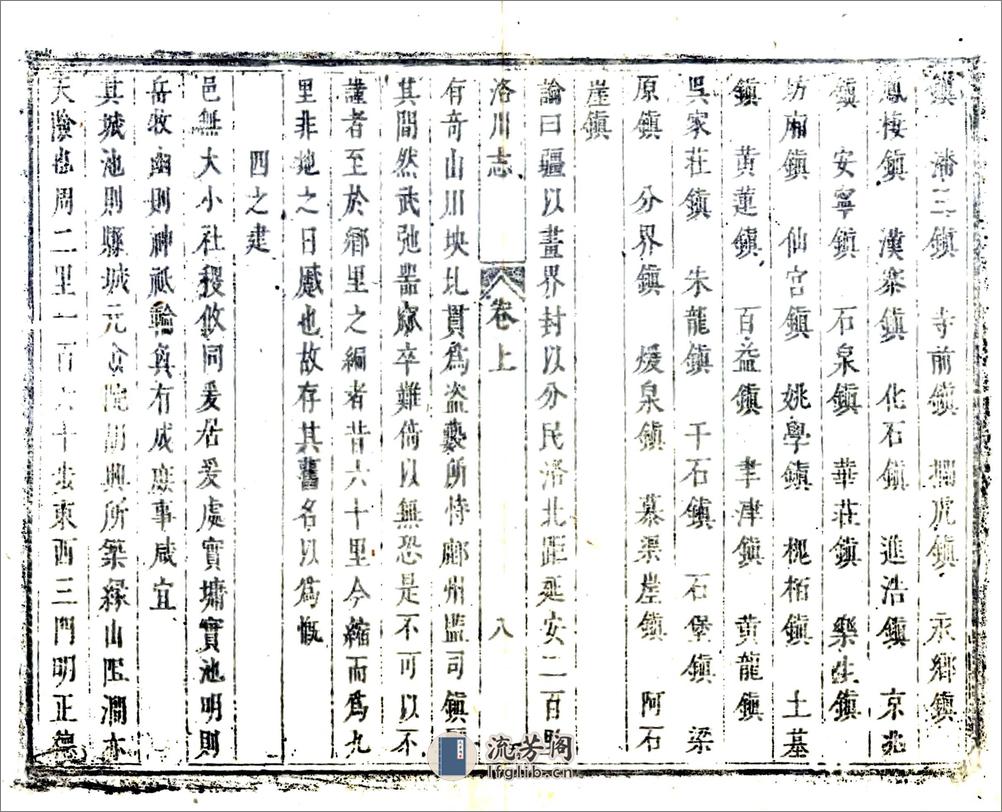 鎮　潘三鎮　寺前鎮　攔虎鎮　永鄉鎮
鳳棲鎮　漢寨鎮　化石鎮　進浩鎮　京兆
鎮　安寧鎮　石泉鎮　華莊鎮　樂生鎮
坊廂鎮　仙宮鎮　姚學鎮　槐栢鎮　土墓
鎮　黃蓮鎮　百益鎮　李津鎮　黃龍鎮
吳家莊鎮　朱龍鎮　千石鎮　石堡鎮　梁
原鎮　分界鎮　煖泉鎮　慕渠崖鎮　阿石
崖鎮
論曰疆以畫界封以分民洛北距延安二百
洛川志　卷上　八
有奇山川坱圠貫為盜藪所恃鄜州監司鎮
其間然武弛器窳卒難倚以無恐是不可以不
謹者至於鄉里之編者昔六十里今縮而為九
里非地之日蹙也故存其舊名以為慨
四之建
邑無大小社稷攸同爰居爰處實墉實池明則
岳牧幽則神祗輪奐有成庶事咸宜
其城池則縣城元僉院胡興所築緣山阻澗亦
天險也周二里一百六十步東西三門明正德
流芳阁
lfglib.cn